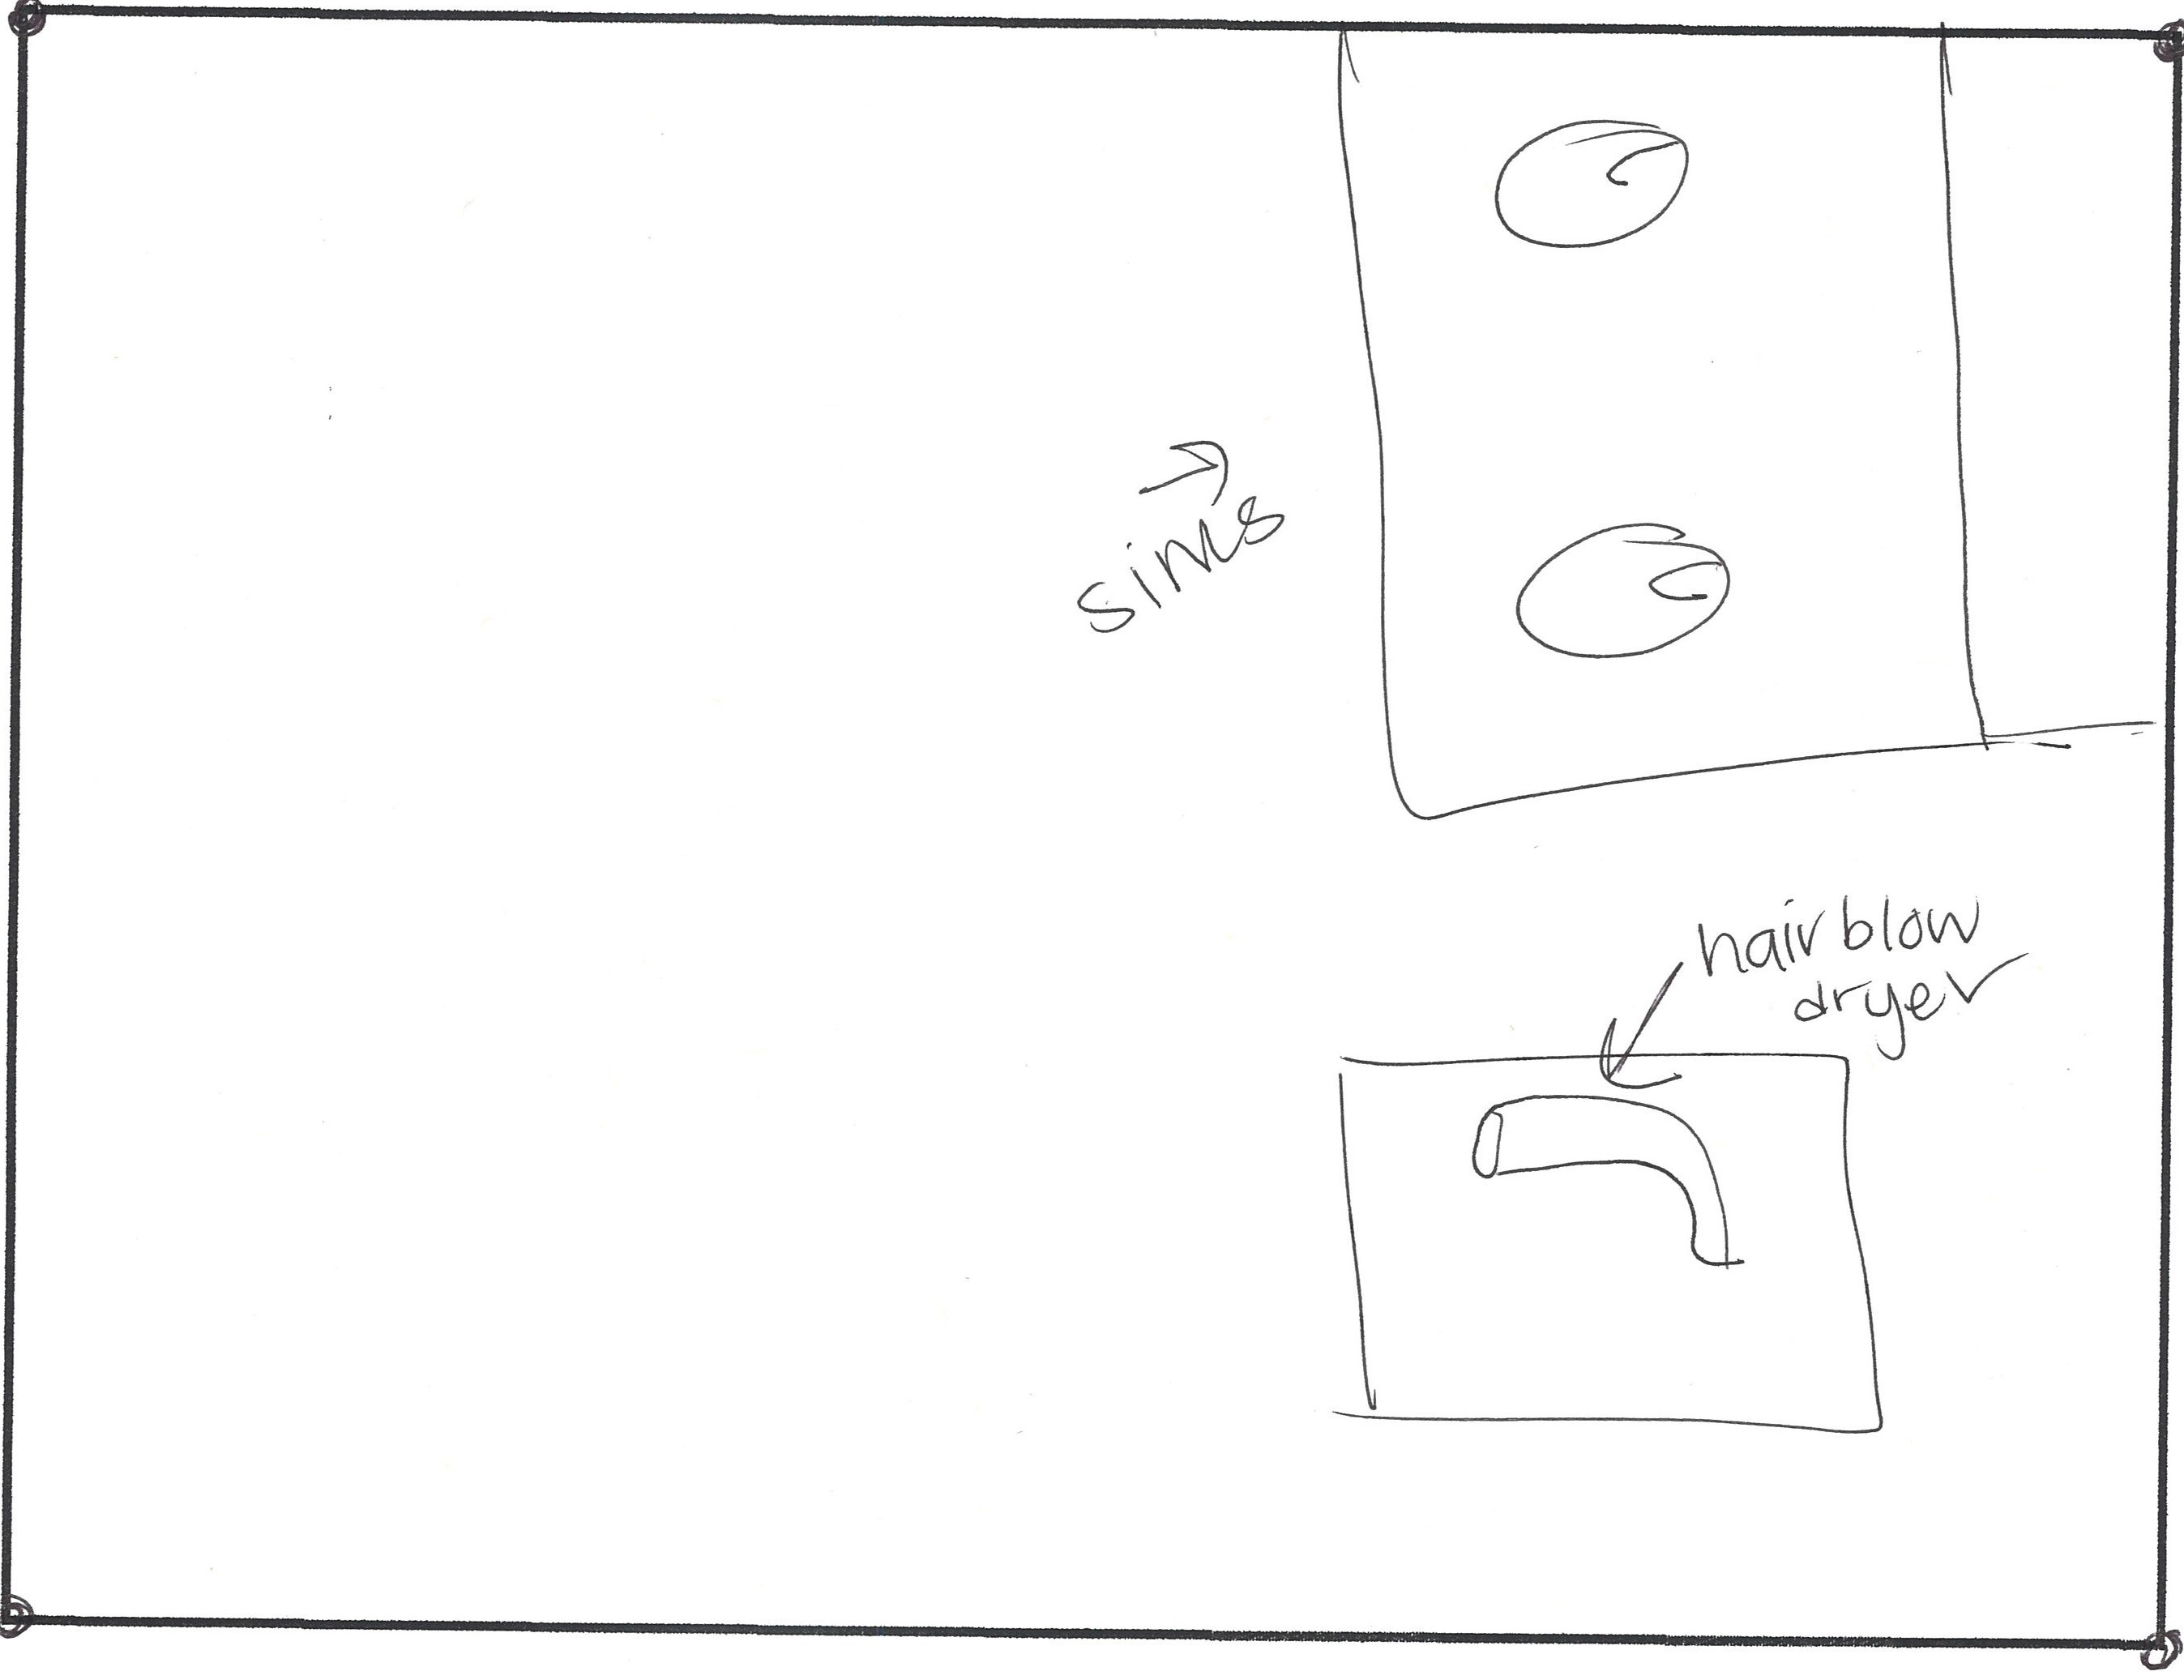 sinks
hair blow
dryer